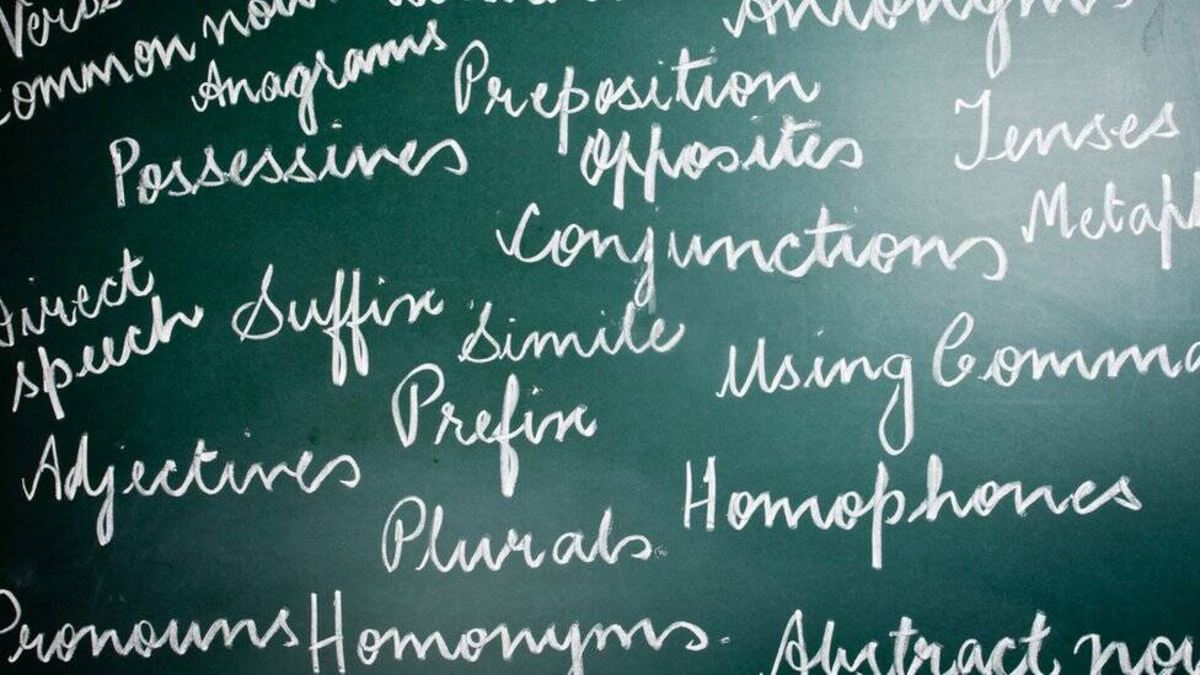 Common noun
Antonyms
Anagrams
Preposition
Possessives
Opposites
Tenses
Conjunctions
Metaph
Direct
speech
Suffix
Simile
Using Comma
Prefix
Adjectives
Homophones
Plurals
Pronouns
Homonyms
Abstract nou